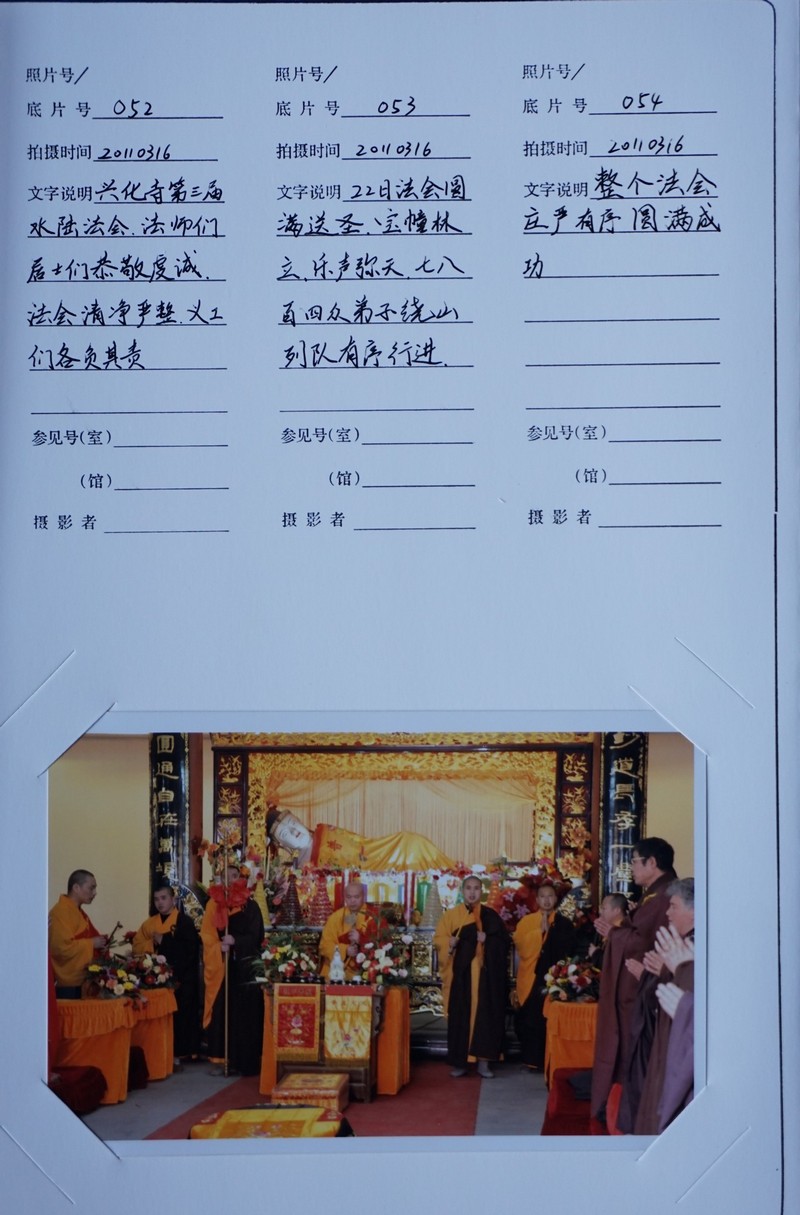 照片号/
底片号 052
拍摄时间 20110316
文字说明 兴化寺第三届
水陆法会.法师们
居士们恭敬虔诚.
法会清净严整.义工
们各负其责
参见号(室)
(馆)
摄影者
照片号/
底片号 053
拍摄时间 20110316
文字说明 22日法会圆
满送圣、宝幢林
立.乐声弥天.七八
百四众弟子绕山
列队有序行进.
参见号(室)
(馆)
摄影者
照片号/
底片号 054
拍摄时间 20110316
文字说明 整个法会
庄严有序圆满成
功
参见号(室)
(馆)
摄影者
圆通自在